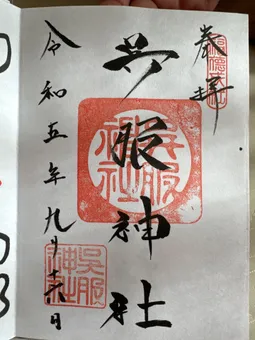 奉拝
呉服神社
呉服神社
令和五年九月十六日
吳服神社